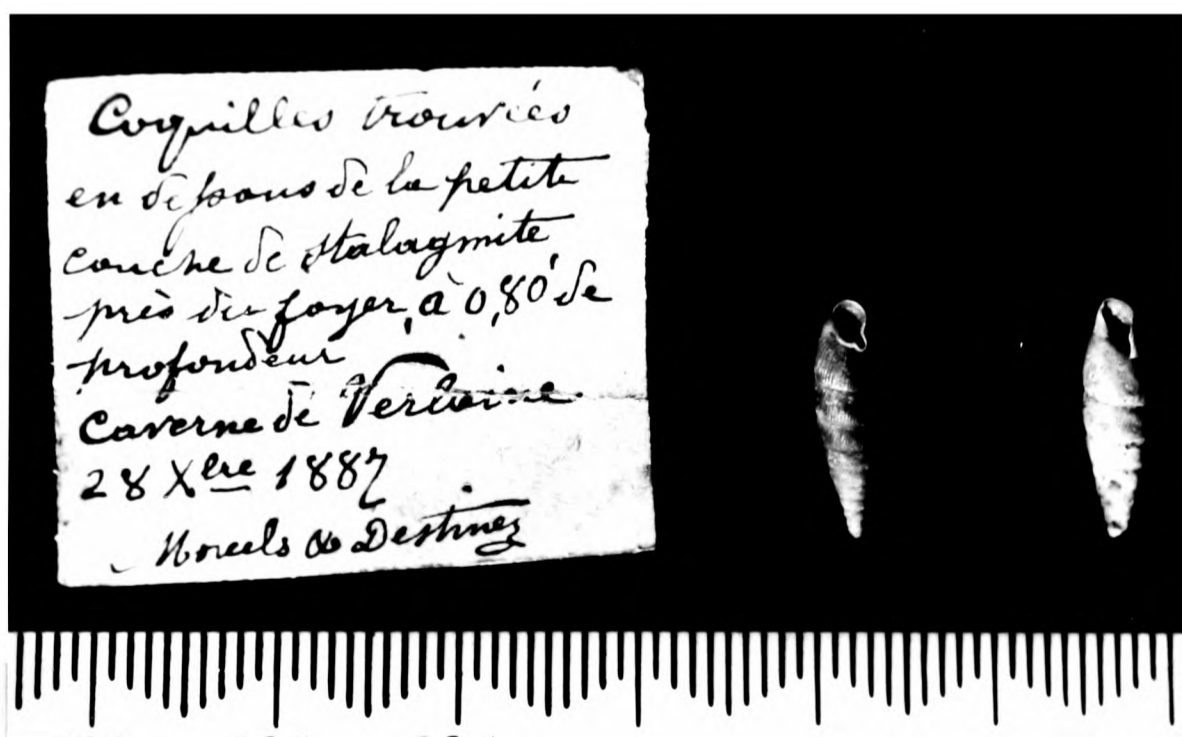 Coquilles trouvées
en dessous de la petite
couche de stalagmite
près du foyer, à 0,80 de
profondeur
Caverne de Verlaine
28 Xbre 1887
& Destinez